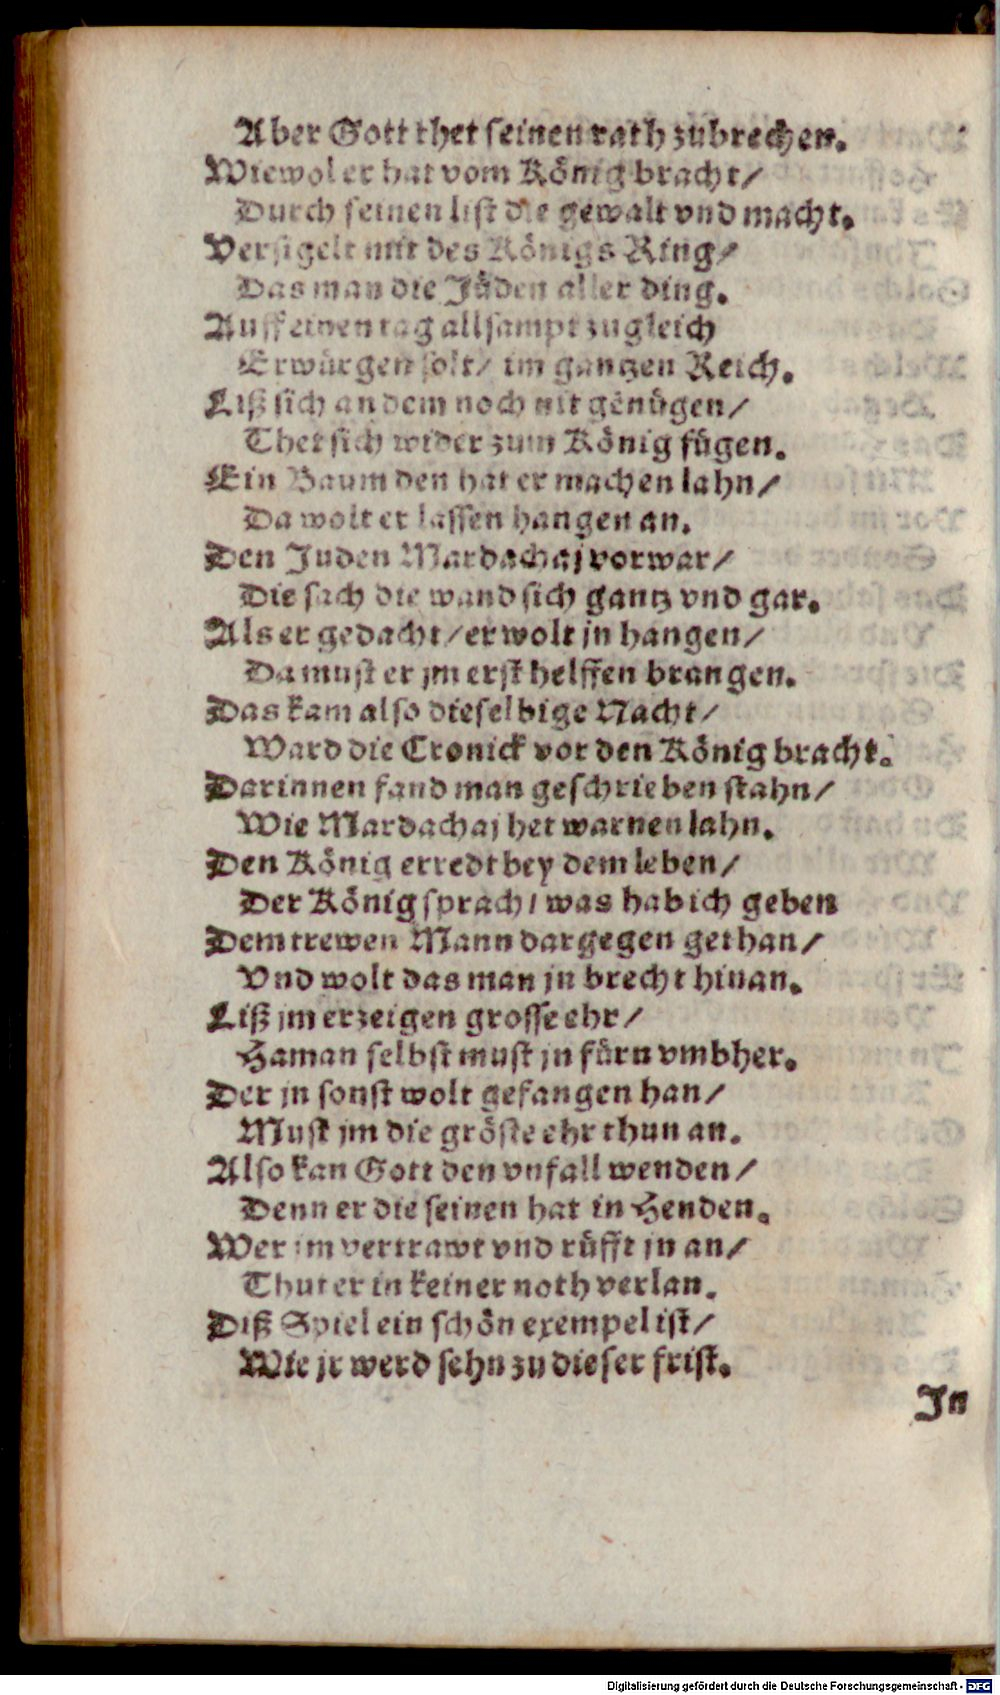 Aber Gott thet seinen rath zubrechen.
Wiewol er hat vom König bracht/
Durch seinen list die gewalt vnd macht.
Versigelt mit des Königs Ring/
Das man die Jüden aller ding.
Auff einen tag allsampt zugleich
Erwürgen solt/ im gantzen Reich.
Liß sich an dem noch nit genügen/
Thet sich wider zum König fügen.
Ein Baum den hat er machen lahn/
Da wolt er lassen hangen an.
Den Juden Mardachaj vorwar/
Die sach die wand sich gantz vnd gar.
Als er gedacht/ er wolt jn hangen/
Da must er jm erst helffen brangen.
Das kam also dieselbige Nacht/
Ward die Cronick vor den König bracht.
Darinnen fand man geschrieben stahn/
Wie Mardachaj het warnen lahn.
Den König erredt bey dem leben/
Der König sprach/ was hab ich geben
Dem trewen Mann dargegen gethan/
Vnd wolt das man jn brecht hinan.
Liß jm erzeigen grosse ehr/
Haman selbst must jn fürn vmbher.
Der jn sonst wolt gefangen han/
Must jm die gröste ehr thun an.
Also kan Gott den vnfall wenden/
Denn er die seinen hat in Henden.
Wer im vertrawt vnd rüfft jn an/
Thut er in keiner noth verlan.
Diß Spiel ein schön exempel ist/
Wie jr werd sehn zu dieser frist.
In
Digitalisierung gefördert durch die Deutsche Forschungsgemeinschaft - DFG